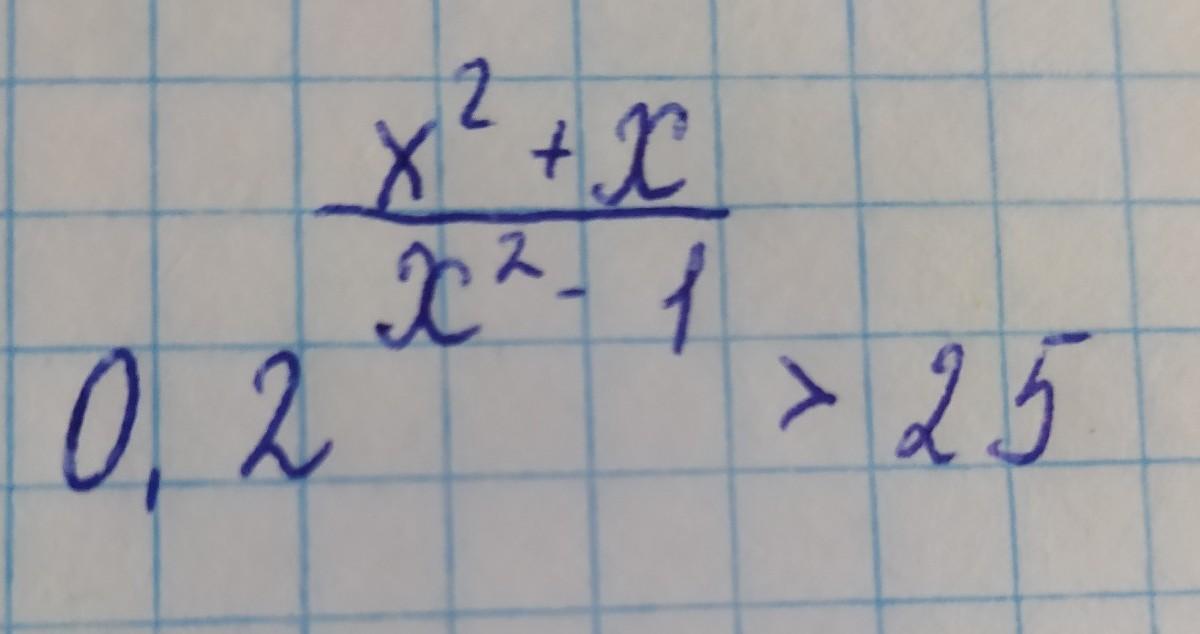 0,2^{\frac{x^2+x}{x^2-1}} > 25